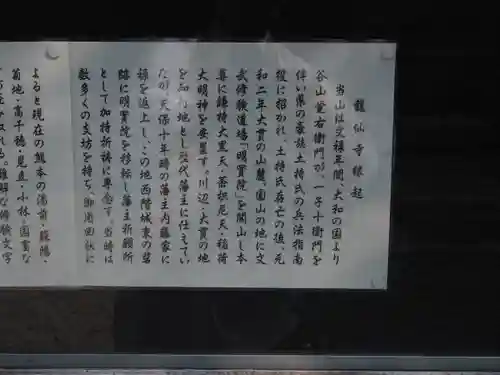 龍仙寺縁起
当山は文禄年間、大和の国より
谷山覚右衛門が、一子十衛門を
伴い県の豪族土持氏の兵法指南
役に招かれ、土持氏存亡の後、元
和二年大貫の山麓、国山の地に文
武修験道場「明實院」を開山し本
尊に鎌持大黒天・荼枳尼天・稲荷
大明神を安置す。川辺・大貫の地
を知行地とし歴代藩主に仕えてい
たが、天保十年時の藩主内藤家に
禄を返上し、この地西階城東の砦
跡に明實院を移転し藩主祈願所
として加持祈祷に専念す。当時は
数多くの支坊を持ち、御廻回状に
よると現在の熊本の湯前・蘇陽・
菊池・高千穂・見立・小林・国富な